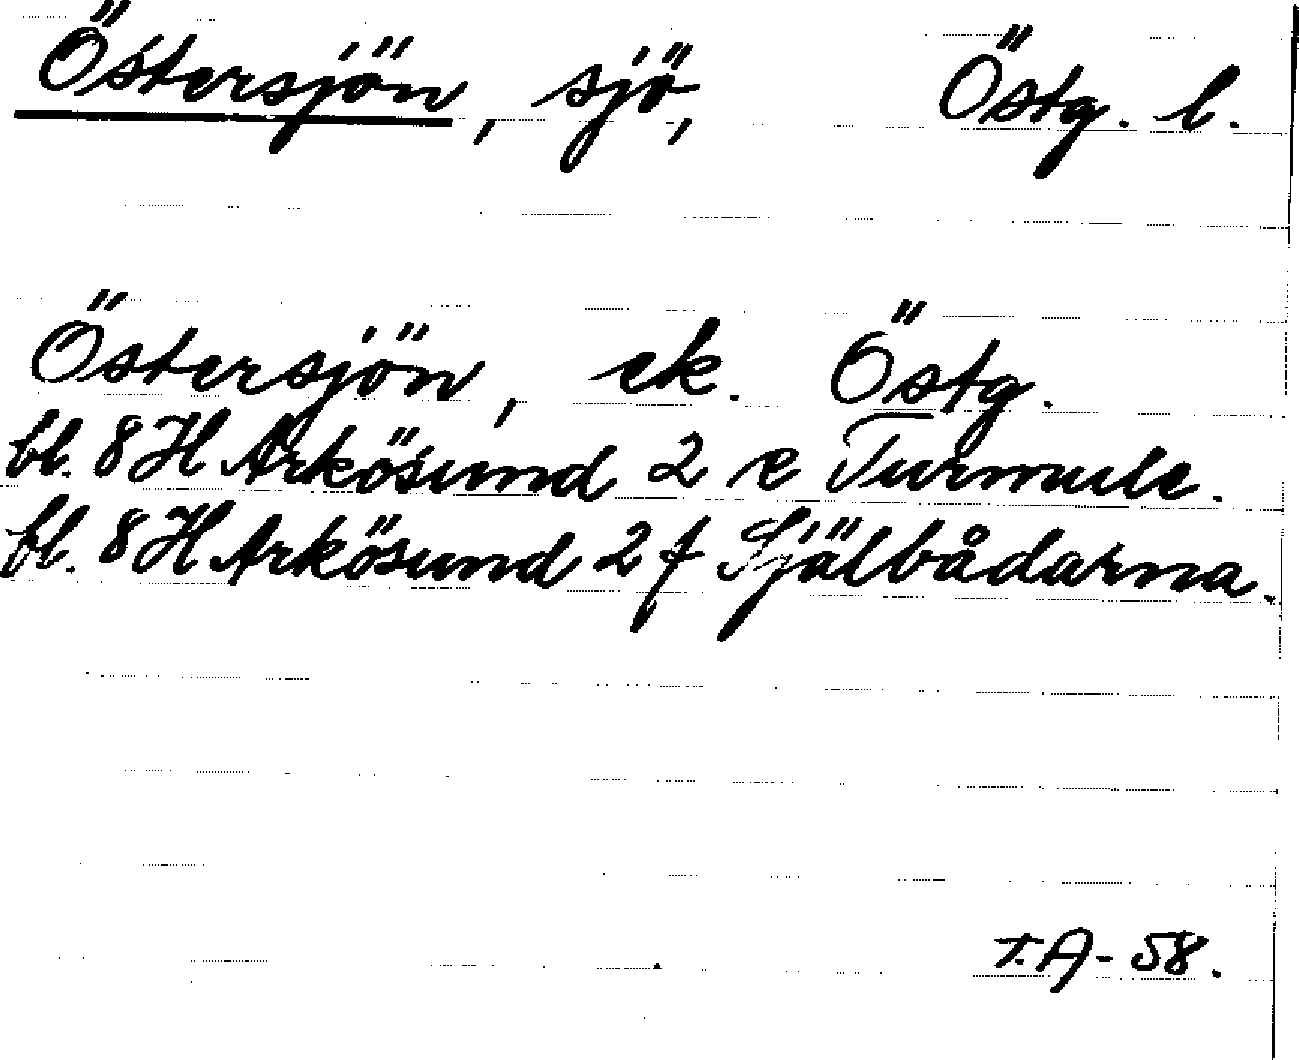 Östersjön, sjö, Östg. l.
Östersjön, ek. Östg.
bl. 8 H Arkösund 2 e Turmule.
bl. 8 H Arkösund 2 f Själbådarna.
T.A-58.